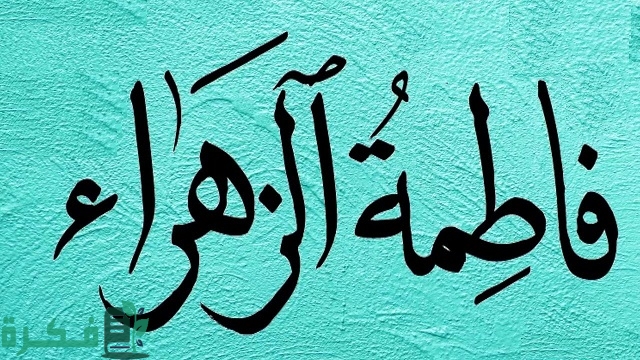 فَاطِمَةُ ٱلزَّهْرَاء
فكرة